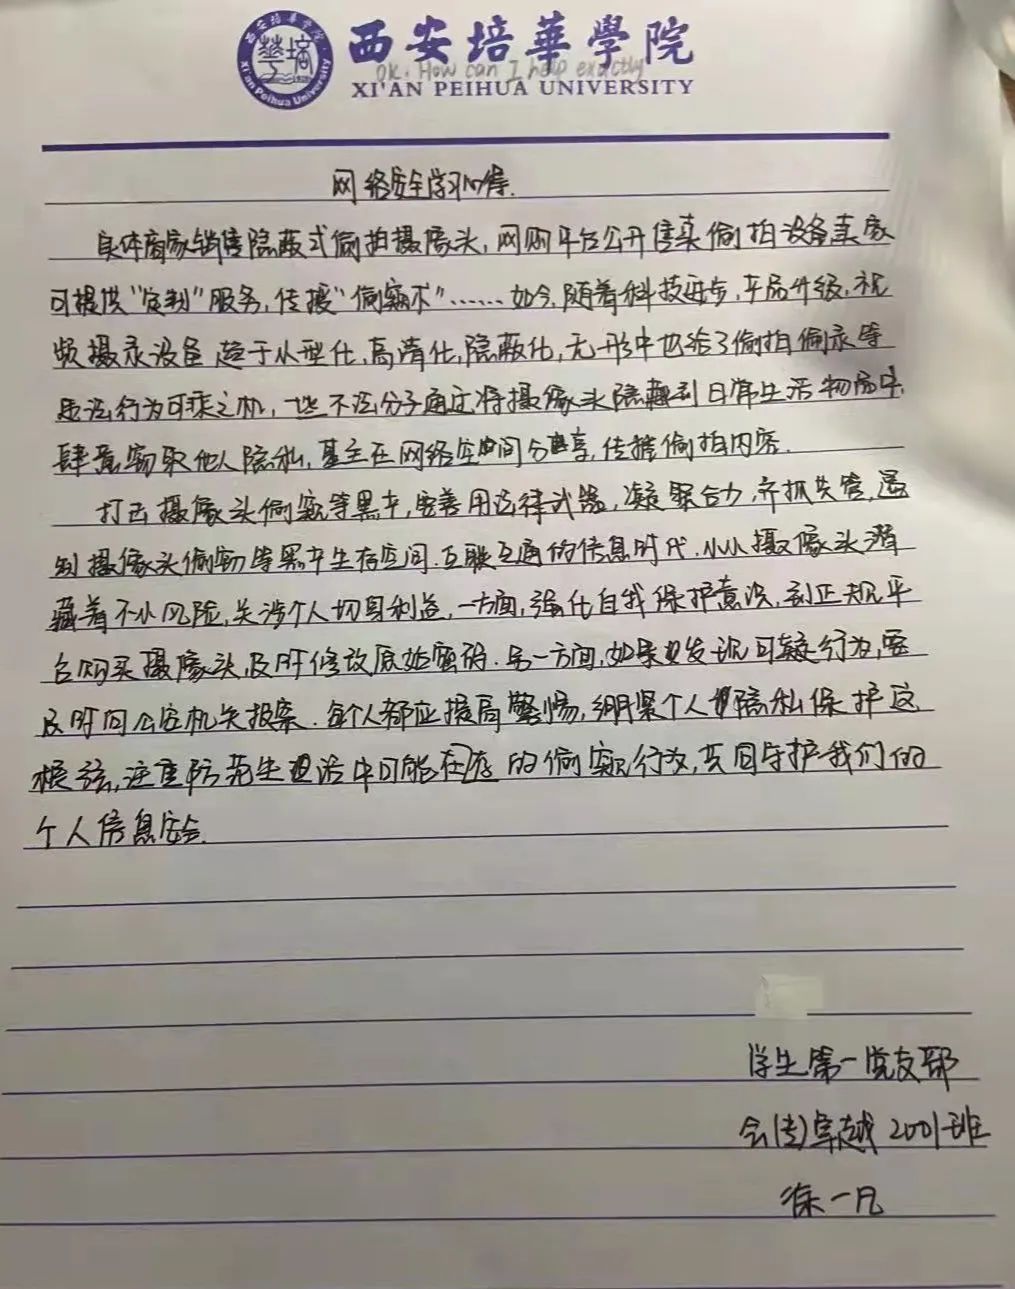 西安培華學院
OK. How can I help exactly
XI'AN PEIHUA UNIVERSITY
西安培華学院
Xi'an Peihua University
网络安全学习心得.
实体商家销售隐蔽式偷拍摄像头,网购平台公开售卖偷拍设备卖家
可提供"定制"服务,传授"偷窥术"……如今,随着科技进步,产品升级,视
频摄录设备趋于小型化,高清化,隐蔽化,无形中也给了偷拍偷录等
违法行为可乘之机,一些不法分子通过将摄像头隐藏到日常生活物品中,
肆意窃取他人隐私,甚至在网络空间分享,传播偷拍内容.
打击摄像头偷窥等黑产,要善用法律武器,凝聚合力,齐抓共管,遏
制摄像头偷窥等黑产生存空间.互联互通的信息时代,小小摄像头潜
藏着不小风险,关涉个人切身利益,一方面,强化自我保护意识,到正规平
台购买摄像头,及时修改原始密码.另一方面,如果发现可疑行为,要
及时向公安机关报案.每个人都应提高警惕,绷紧个人隐私保护这
根弦,注重防范生活中可能存在的偷窥行为,共同守护我们的
个人信息安全.
学生第一党支部
会(专)卓越2001班
徐一凡